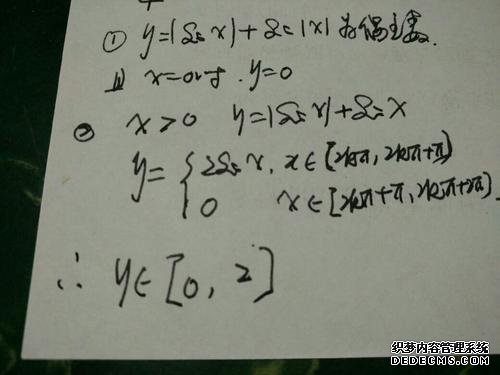 ① y=|Sin x|+Sin|x| 为偶函数.
x=0时. y=0
② x>0 y=|Sin x|+Sin x
y={2Sin x, x∈[2kπ, 2kπ+π)
0 x∈[2kπ+π, 2kπ+2π).
∴ y∈[0, 2]
织梦内容管理系统
DEDECMS.COM